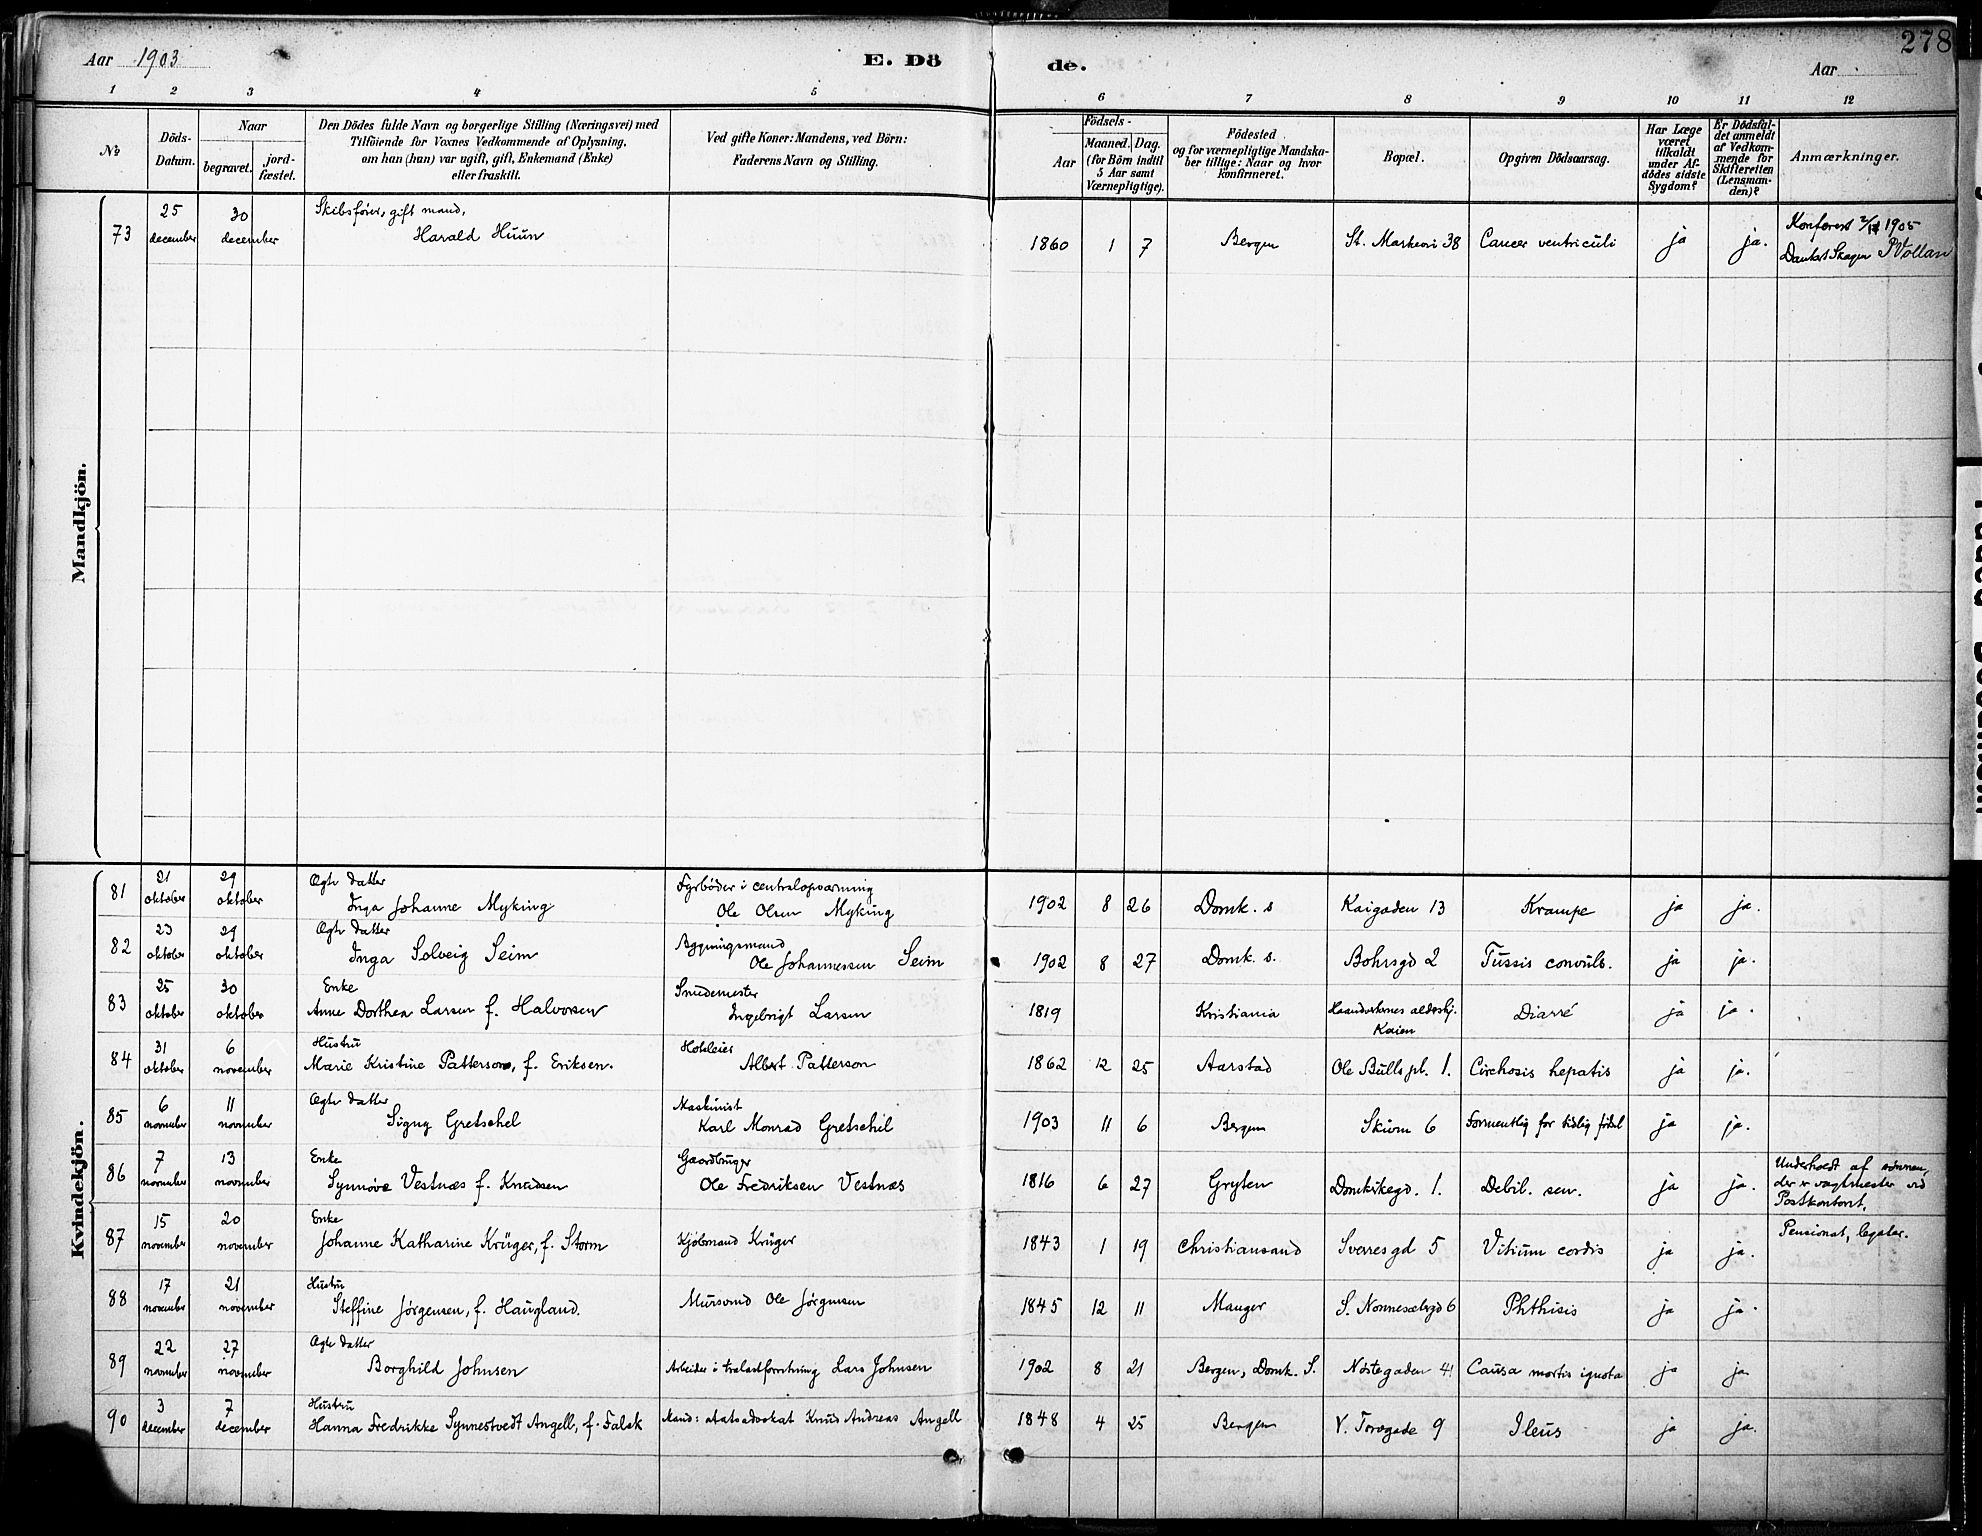 278
Aar 1903
E. Dö de.
Aar
1 2 3 4 5 6 7 8 9 10 11 12
№
Döds-Datum.
Naar
begravet.
jordfæstet.
Den Dödes fulde Navn og borgerlige Stilling (Næringsvei) med
Tilföiende for Voxnes Vedkommende af Oplysning,
om han (hun) var ugift, gift, Enkemand (Enke)
eller fraskilt.
Ved gifte Koner: Mandens, ved Börn:
Faderens Navn og Stilling.
Födsels-
Aar
Maaned. Dag.
(for Börn indtil
5 Aar samt
Værnepligtige).
Födested
og for værnepligtige Mandska-
ber tillige: Naar og hvor
konfirmeret.
Bopæl.
Opgiven Dödsaarsag.
Har Læge
været
tilkaldt
under Af-
dödes sidste
Sygdom?
Er Dödsfal-
det anmeldt
af Vedkom-
mende for
Skifteretten
(Lensman-
den)?
Anmærkninger.
Mandkjön.
73 25 december 30 december Skibsfører, gift mand, Harald Huun 1860 1 7 Bergen St. Markevei 38 Cancer ventriculi ja ja. 1905
Kvindekjön.
81 21 oktober 29 oktober Ægte datter Inga Johanne Myking Fyrbøder i centralopvarming Ole Olsen Myking 1902 8 26 Domk. s Kaigaden 13 Krampe ja ja.
82 23 oktober 29 oktober Ægte datter Inga Solveig Seim Bygningsmand Ole Johannessen Seim 1902 8 27 Domk. s. Bohrsgd 2 Tussis convuls. ja ja.
83 25 oktober 30 oktober Enke Anne Dorthea Larsen f. Halvorsen Smedemester Ingebrigt Larsen 1819 Kristiania Haandverkernes aldershj. Kaien Diarré ja ja.
84 31 oktober 6 november Hustru Marie Kristine Patterson, f. Eriksen. Hoteleier Albert Patterson 1862 12 25 Aarstad Ole Bulls pl. 1. Cirrhosis hepatis ja ja.
85 6 november 11 november Ægte datter Signy Gretschel Maskinist Karl Monrad Gretschel 1903 11 6 Bergen Skivm 6 Formentlig for tidlig fødsel ja ja.
86 7 november 13 november Enke Synnøve Vestnæs f. Knudsen Gaardbruger Ole Fredriksen Vestnæs 1816 6 27 Gryten Domkirkegd. 1. Debil. sen. ja ja. Underholdt af sønnen, der er vagtmester ved Postkontoret.
87 15 november 20 november Enke Johanne Katharine Krüger, f. Storm Kjøbmand Krüger 1843 1 19 Christiansand Sverresgd 5 Vitium cordis ja ja. Pensionat, legater.
88 17 november 21 november Hustru Steffine Jørgensen, f. Haugland. Mursvend Ole Jørgensen 1845 12 11 Manger S. Nonnesætergd 6 Phthisis ja ja.
89 22 november 27 november Ægte datter Borghild Johnsen Arbeider i trelastforretning Lars Johnsen 1902 8 21 Bergen, Domk. S. Nøstegaden 41 Causa mortis ignota ja ja
90 3 december 7 december Hustru Hanna Fredrikke Synnestvedt Angell, f. Falsk Mand: statsadvokat Knud Andreas Angell 1848 4 25 Bergen V. Torvgade 9 Ileus ja ja.